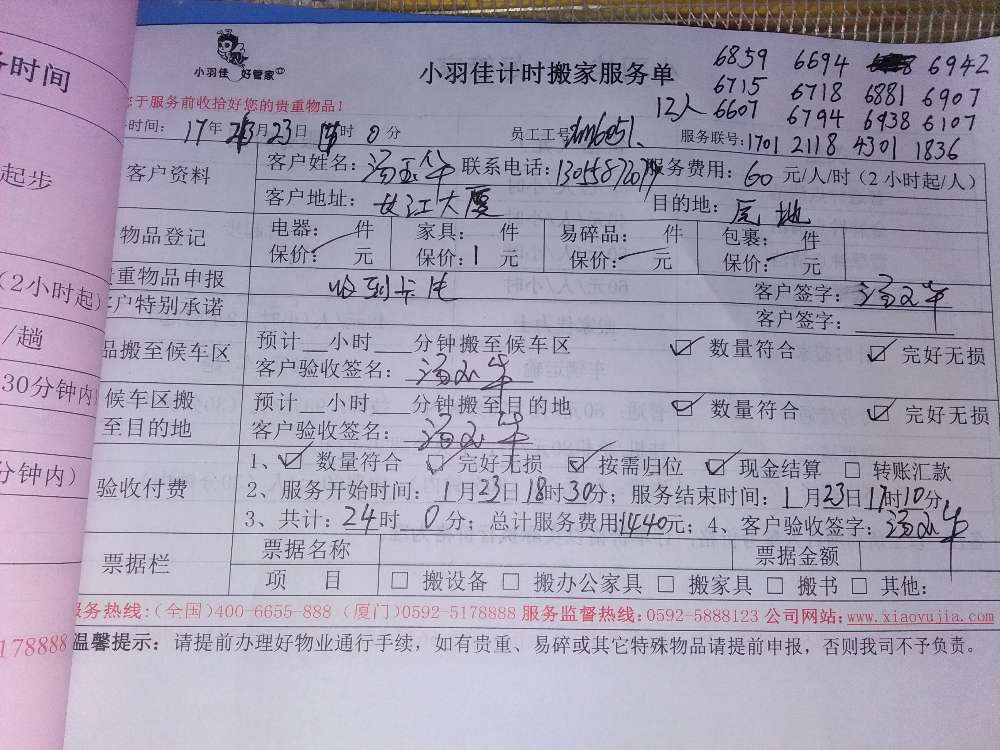 务时间
起步
(2小时起)
/趟
30分钟内)
分钟内)
178888
小羽佳 好管家
小羽佳计时搬家服务单
6859 6694 6942
6715 6718 6881 6907
12人 6607 6794 6938 6107
于服务前收拾好您的贵重物品!
时间: 17年 月23日 时0分 员工工号: 服务联号:1701 2118 4301 1836
客户资料 客户姓名: 联系电话: 服务费用:60元/人/时(2小时起/人)
客户地址: 大厦 目的地: 原地
物品登记 电器: 件 家具: 件 易碎品: 件 包裹: 件
保价: 元 保价:1元 保价: 元 保价: 元
贵重物品申报 收到卡片 客户签字:
客户特别承诺 客户签字:
品搬至候车区 预计 小时 分钟搬至候车区 ☑ 数量符合 ☑ 完好无损
客户验收签名:
候车区搬至目的地 预计 小时 分钟搬至目的地 ☑ 数量符合 ☑ 完好无损
客户验收签名:
验收付费 1、☑ 数量符合 ☑ 完好无损 ☑ 按需归位 ☑ 现金结算 □ 转账汇款
2、服务开始时间:1月23日18时30分;服务结束时间:1月23日17时10分
3、共计:24时0分;总计服务费用1440元;4、客户验收签字:
票据栏 票据名称 票据金额
项 目 □ 搬设备 □ 搬办公家具 □ 搬家具 □ 搬书 □ 其他:
服务热线:(全国)400-6655-888 (厦门)0592-5178888 服务监督热线:0592-5888123 公司网站:www.xiaoyujia.com
温馨提示:请提前办理好物业通行手续,如有贵重、易碎或其它特殊物品请提前申报,否则我司不予负责。